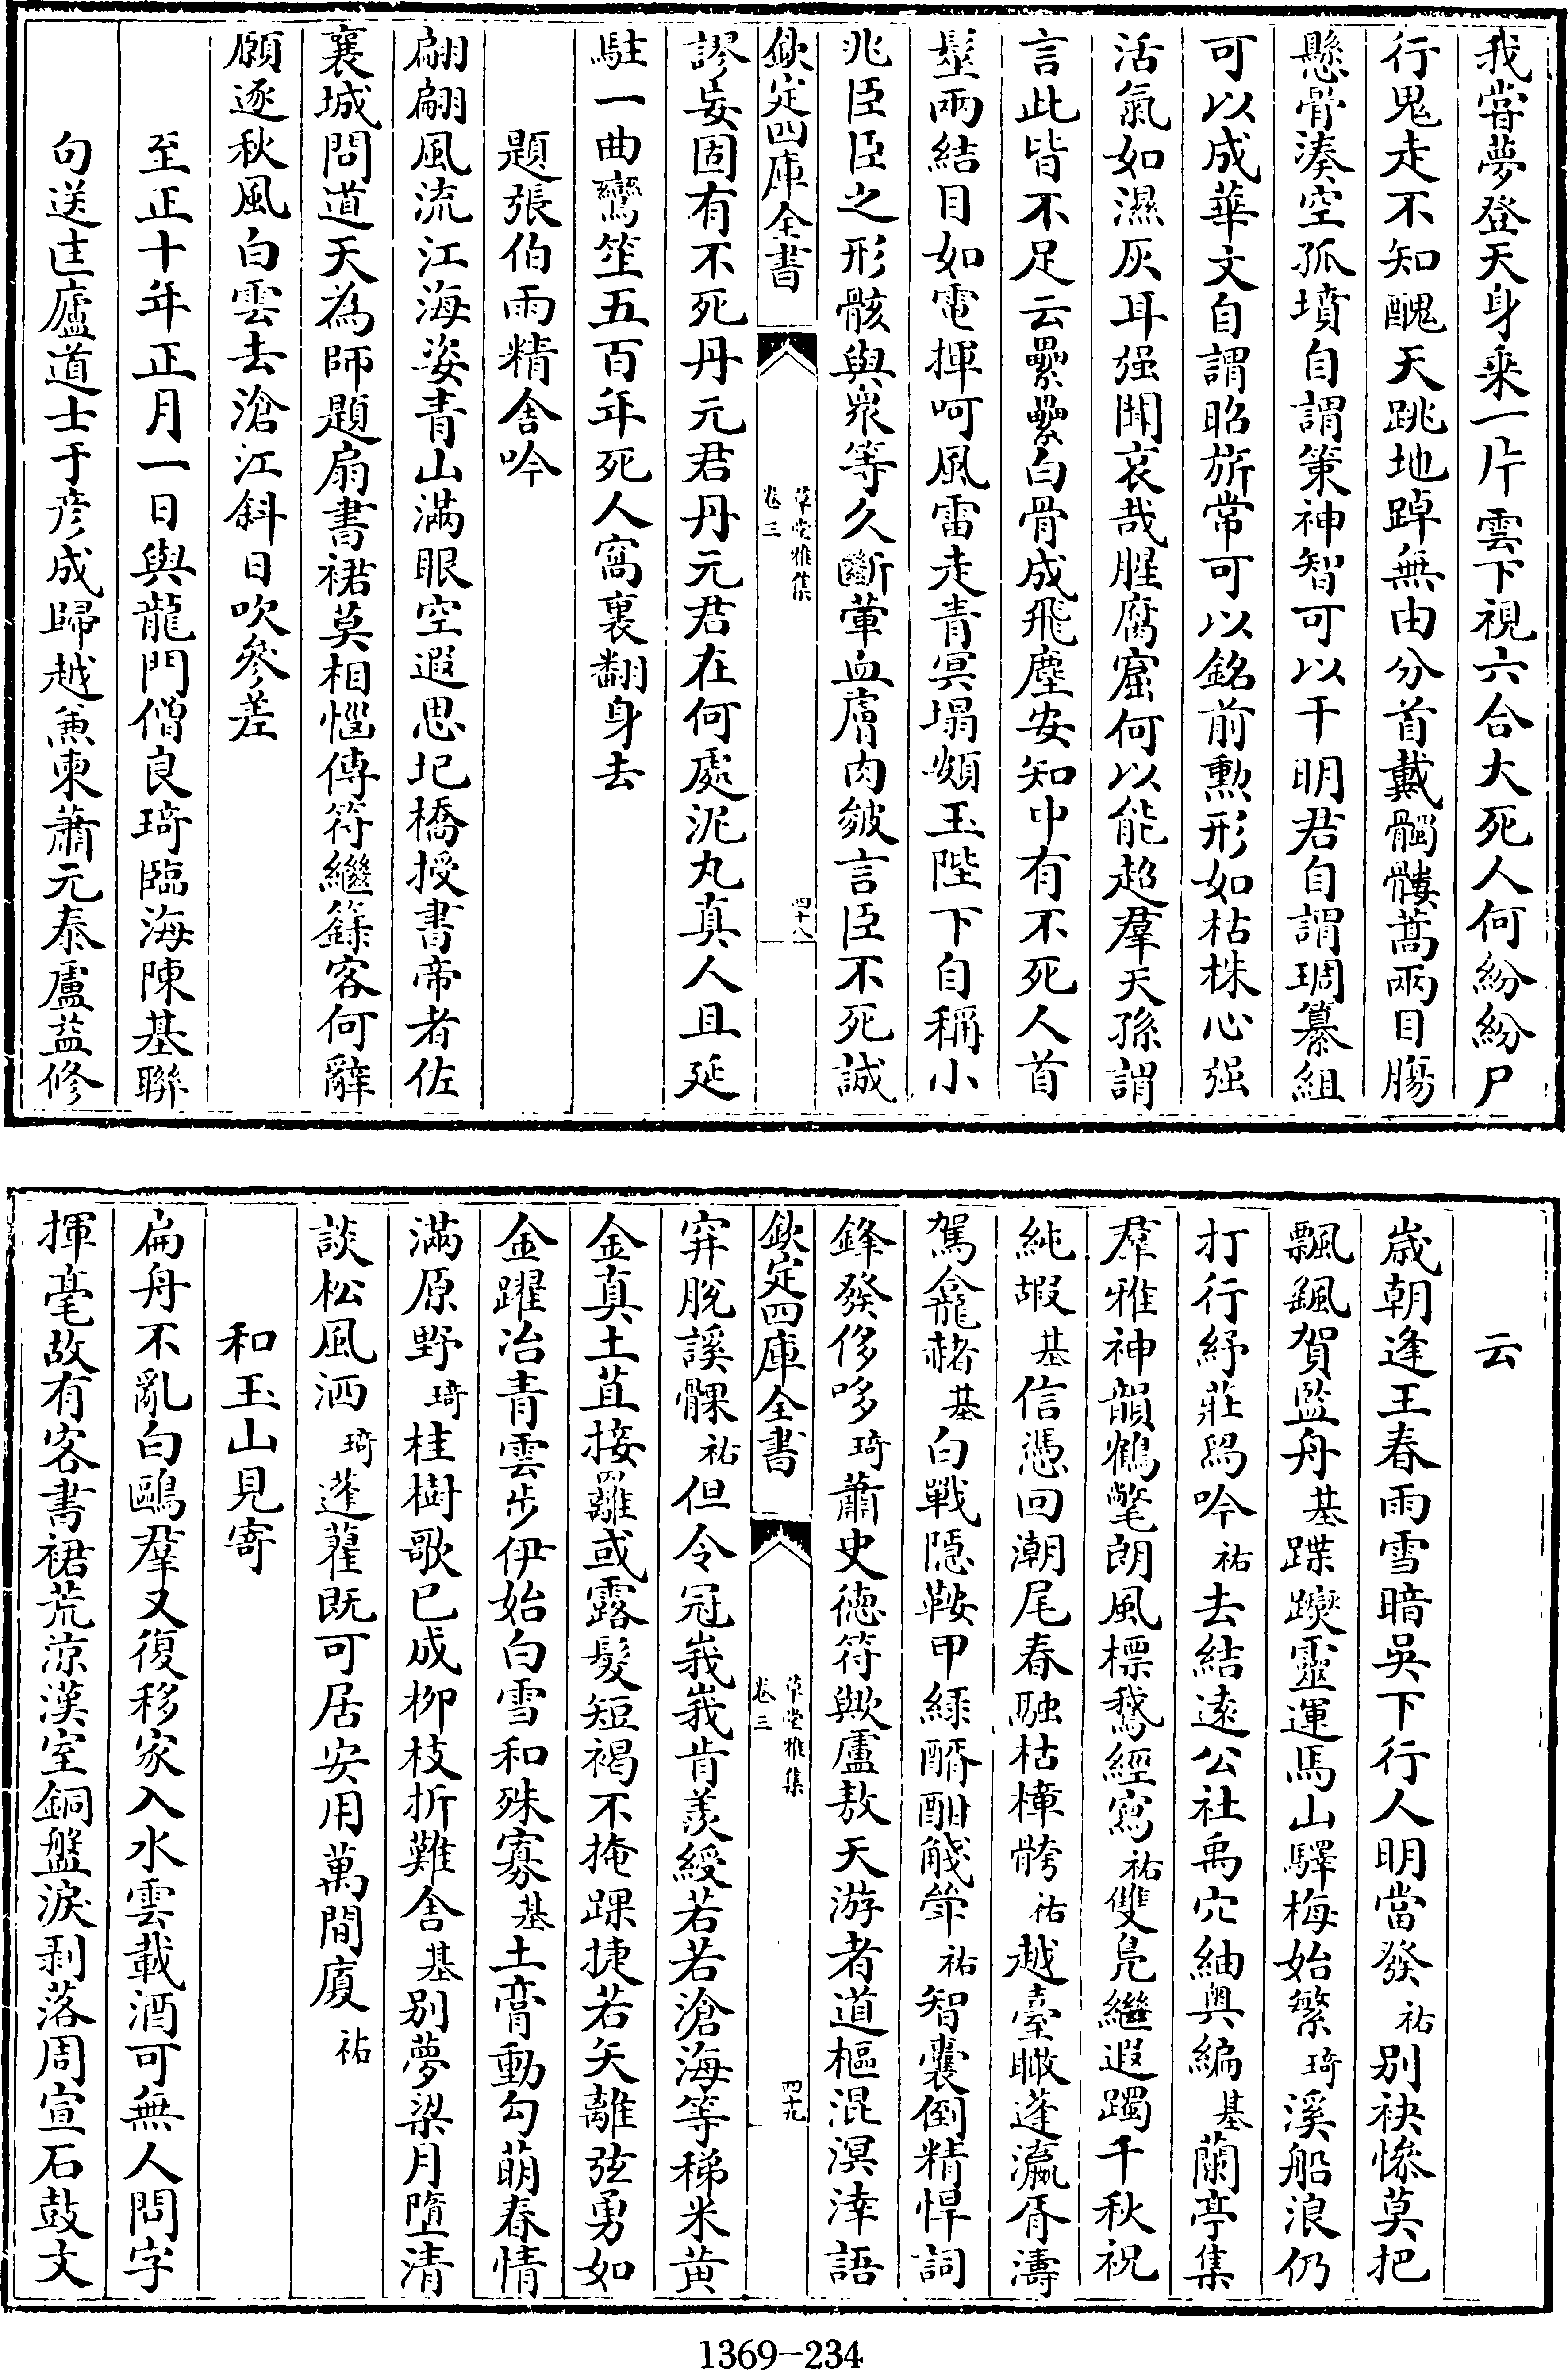 我嘗夢登天身乘一片雲下視六合大死人何紛紛尸
行鬼走不知醜天跳地踔無由分首戴髑髏蒿兩目腸
懸骨湊空孤墳自謂策神智可以干明君自謂琱纂組
可以成華文自謂昭旂常可以銘前勲形如枯株心强
活氣如濕灰耳强聞哀哉腥腐窟何以能超羣天孫謂
言此皆不足云纍纍白骨成飛塵安知中有不死人首
髽兩結目如電揮呵風雷走青冥塌頫玉陛下自稱小
兆臣臣之形骸與衆等久斷葷血膚肉皴言臣不死誠
欽定四庫全書
草堂雅集
卷三
四十八
謬妄固有不死丹元君丹元君在何處泥丸真人且延
駐一曲鸞笙五百年死人窩裏翻身去
題張伯雨精舍吟
翩翩風流江海姿青山滿眼空遐思圯橋授書帝者佐
襄城問道天為師題扇書裙莫相惱傳符繼籙客何辭
願逐秋風白雲去滄江斜日吹參差
至正十年正月一日與龍門僧良琦臨海陳基聯
句送匡廬道士于彦成歸越兼柬蕭元泰盧益修
云
歲朝逢王春雨雪暗吳下行人明當發祐别袂慘莫把
飄飄賀監舟基蹀躞靈運馬山驛梅始繁琦溪船浪仍
打行紓莊舄吟祐去結遠公社禹穴紬奥編基蘭亭集
羣雅神韻鶴氅朗風標鵞經寫祐雙凫繼遐躅千秋祝
純嘏基信憑回潮尾春融枯樟骻祐越臺瞰蓬瀛胥濤
駕龕赭基白戰隠鞍甲緑醑酣觴斝祐智囊倒精悍詞
鋒發侈哆琦蕭史徳符歟盧敖天游者道樞混溟涬語
欽定四庫全書
草堂雅集
卷三
四十九
穽脫謑髁祐但令冠峩峩肯羨綬若若滄海等稊米黄
金真土苴接䍦或露髮短褐不掩踝捷若矢離弦勇如
金躍冶青雲步伊始白雪和殊寡基土膏動勾萌春情
滿原野琦桂樹歌已成栁枝折難舍基别夢梁月墮清
談松風洒琦蓬藋既可居安用萬間廈祐
和玉山見寄
扁舟不亂白鷗羣又復移家入水雲載酒可無人問字
揮毫故有客書裙荒凉漢室銅盤淚剥落周宣石鼓文
1369-234